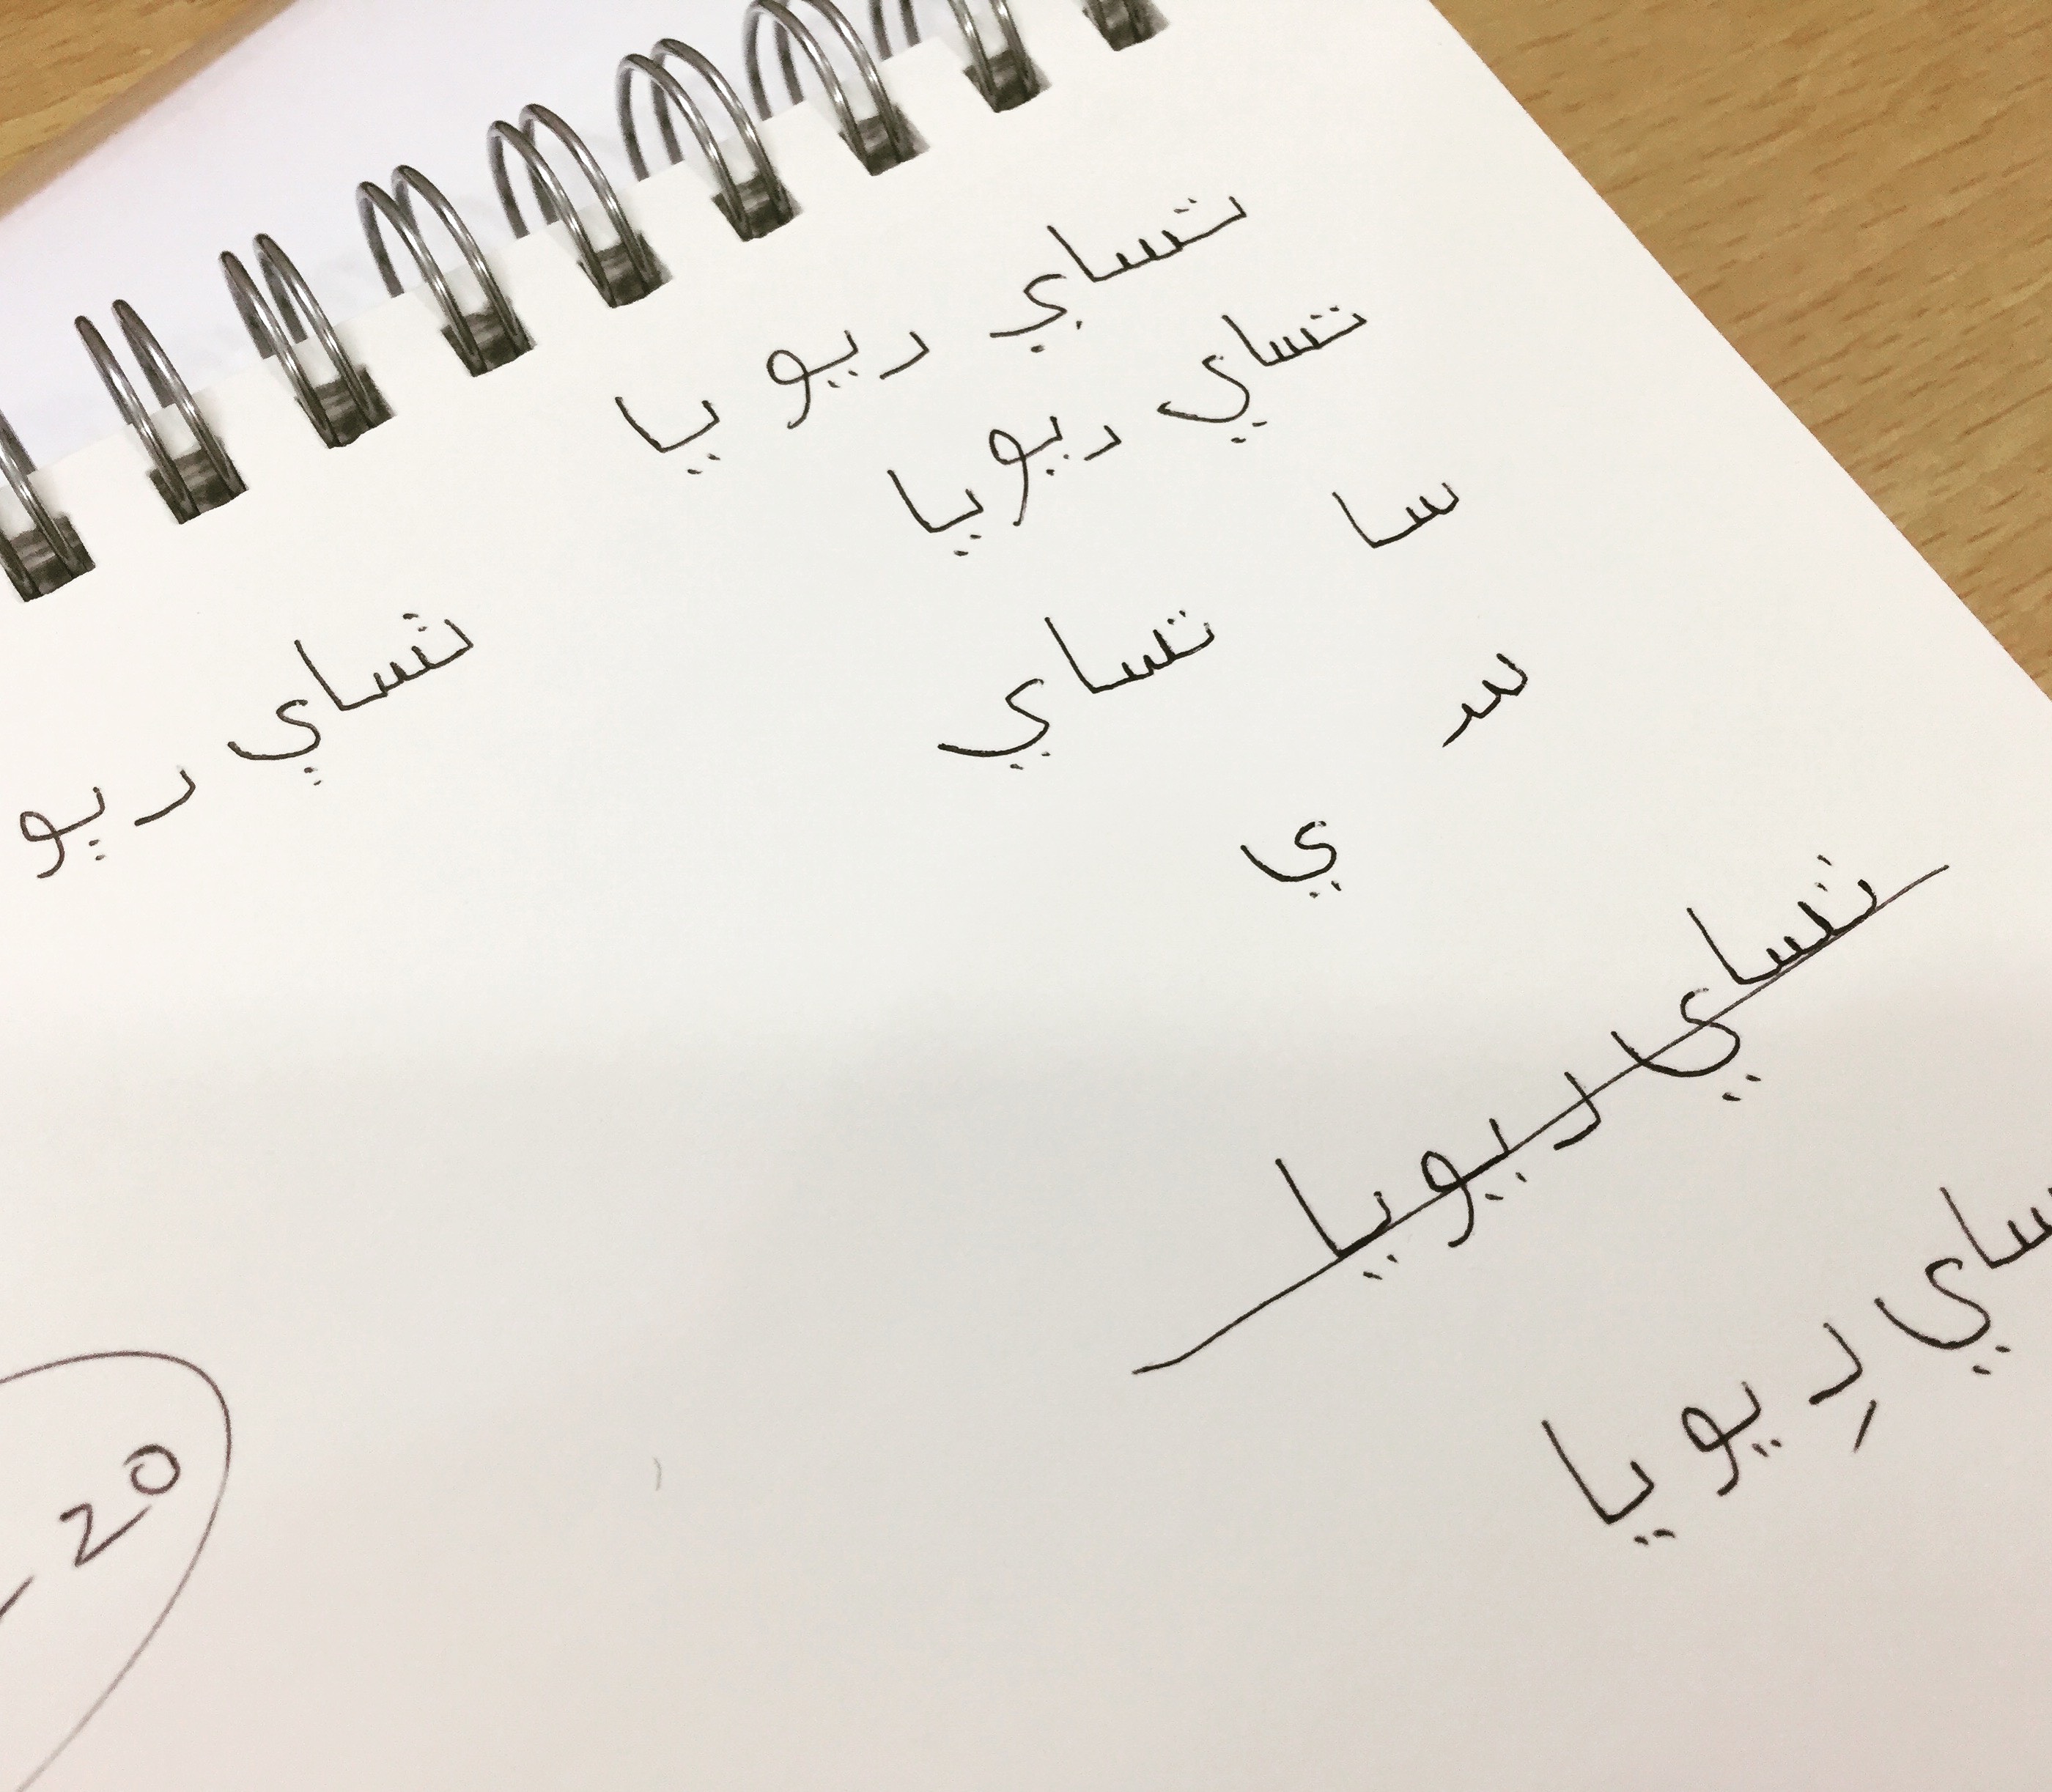 تساي ريو يا
تساي ريويا
سا
تساي ريو
تساي
سر
ي
تساي ريويا
ساي رِيويا
20